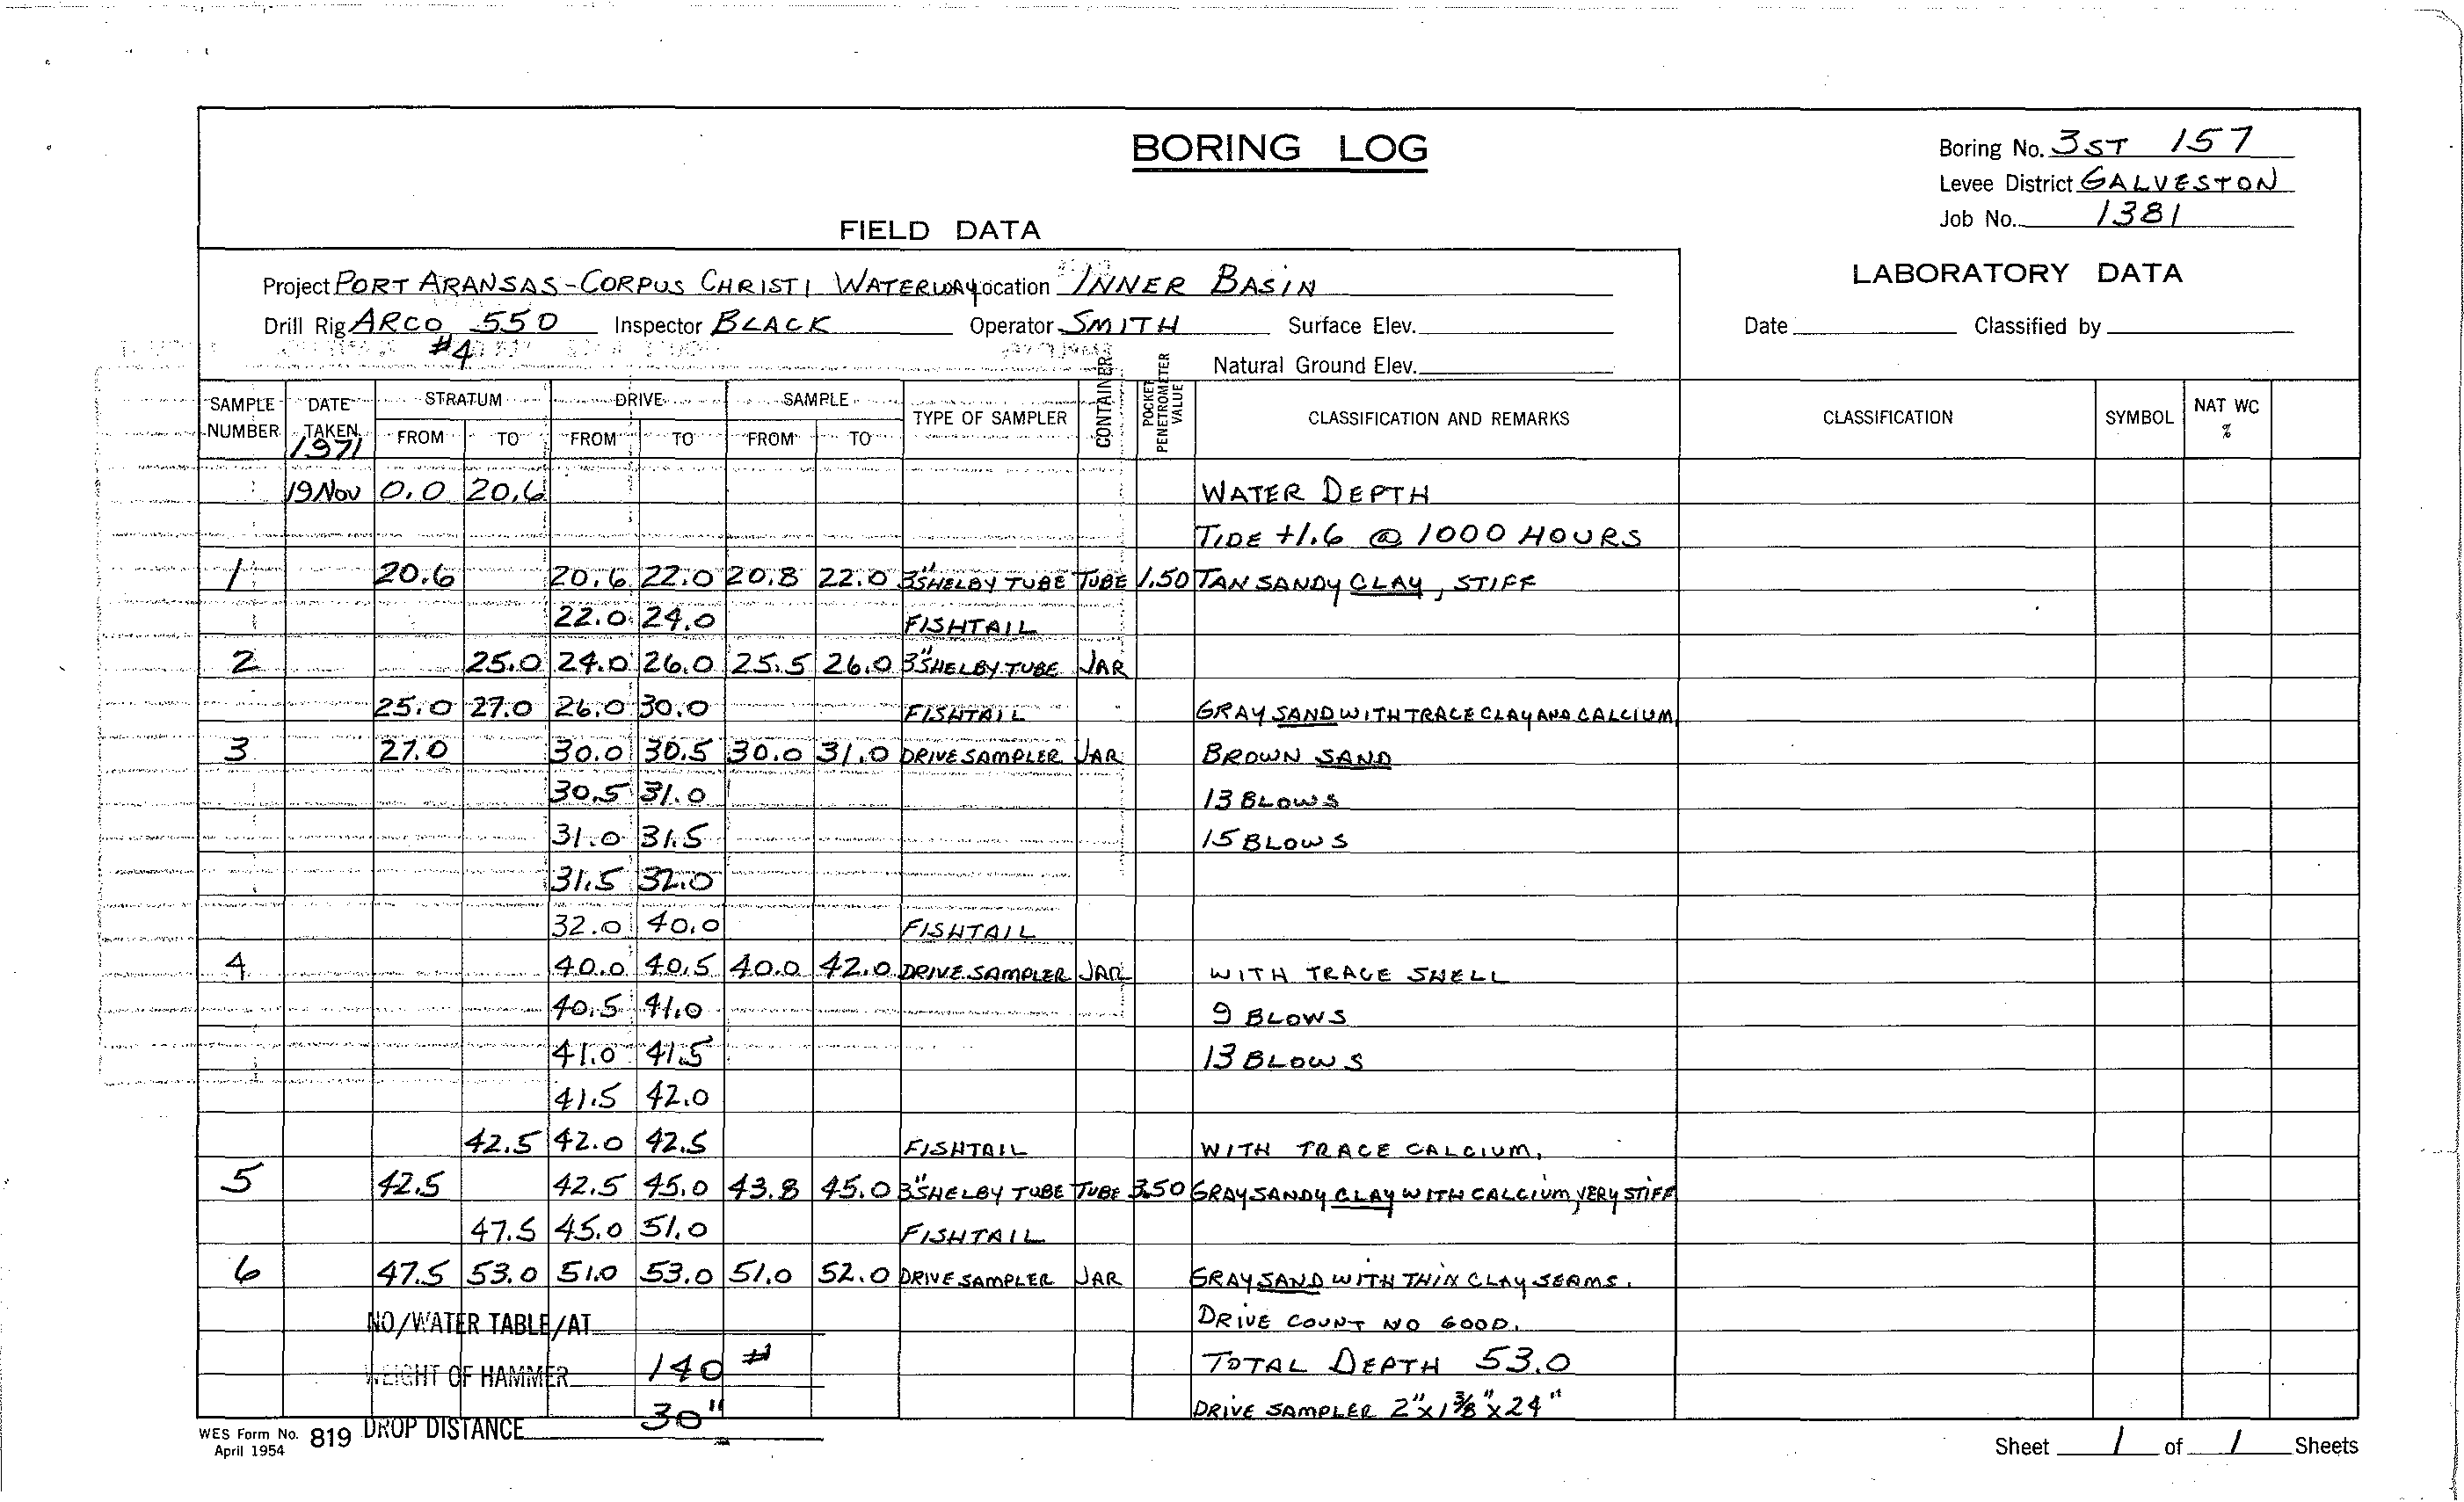 BORING LOG
Boring No. 3ST 157
Levee District GALVESTON
Job No. 1381
FIELD DATA
LABORATORY DATA
Project PORT ARANSAS-CORPUS CHRISTI WATERWAY Location INNER BASIN
Drill Rig ARCO 550 Inspector BLACK Operator SMITH Surface Elev.
Date Classified by
#4
Natural Ground Elev.
SAMPLE NUMBER DATE TAKEN 1971 STRATUM FROM TO DRIVE FROM TO SAMPLE FROM TO TYPE OF SAMPLER CONTAINER POCKET PENETROMETER VALUE CLASSIFICATION AND REMARKS CLASSIFICATION SYMBOL NAT WC %
19 NOV 0.0 20.6 WATER DEPTH
TIDE +1.6 @ 1000 HOURS
1 20.6 20.6 22.0 20.8 22.0 3" SHELBY TUBE TUBE 1.50 TAN SANDY CLAY, STIFF
22.0 24.0 FISHTAIL
2 25.0 24.0 26.0 25.5 26.0 3" SHELBY TUBE JAR
25.0 27.0 26.0 30.0 FISHTAIL GRAY SAND WITH TRACE CLAY AND CALCIUM
3 27.0 30.0 30.5 30.0 31.0 DRIVE SAMPLER JAR BROWN SAND
30.5 31.0 13 BLOWS
31.0 31.5 15 BLOWS
31.5 32.0
32.0 40.0 FISHTAIL
4 40.0 40.5 40.0 42.0 DRIVE SAMPLER JAR WITH TRACE SHELL
40.5 41.0 9 BLOWS
41.0 41.5 13 BLOWS
41.5 42.0
42.5 42.0 42.5 FISHTAIL WITH TRACE CALCIUM.
5 42.5 42.5 45.0 43.8 45.0 3" SHELBY TUBE TUBE 3.50 GRAY SANDY CLAY WITH CALCIUM, VERY STIFF
47.5 45.0 51.0 FISHTAIL
6 47.5 53.0 51.0 53.0 51.0 52.0 DRIVE SAMPLER JAR GRAY SAND WITH THIN CLAY SEAMS.
NO/WATER TABLE/AT DRIVE COUNT NO GOOD.
WEIGHT OF HAMMER 140 # TOTAL DEPTH 53.0
DROP DISTANCE 30" DRIVE SAMPLER 2" X 1 3/8" X 24"
WES Form No. 819
April 1954
Sheet 1 of 1 Sheets